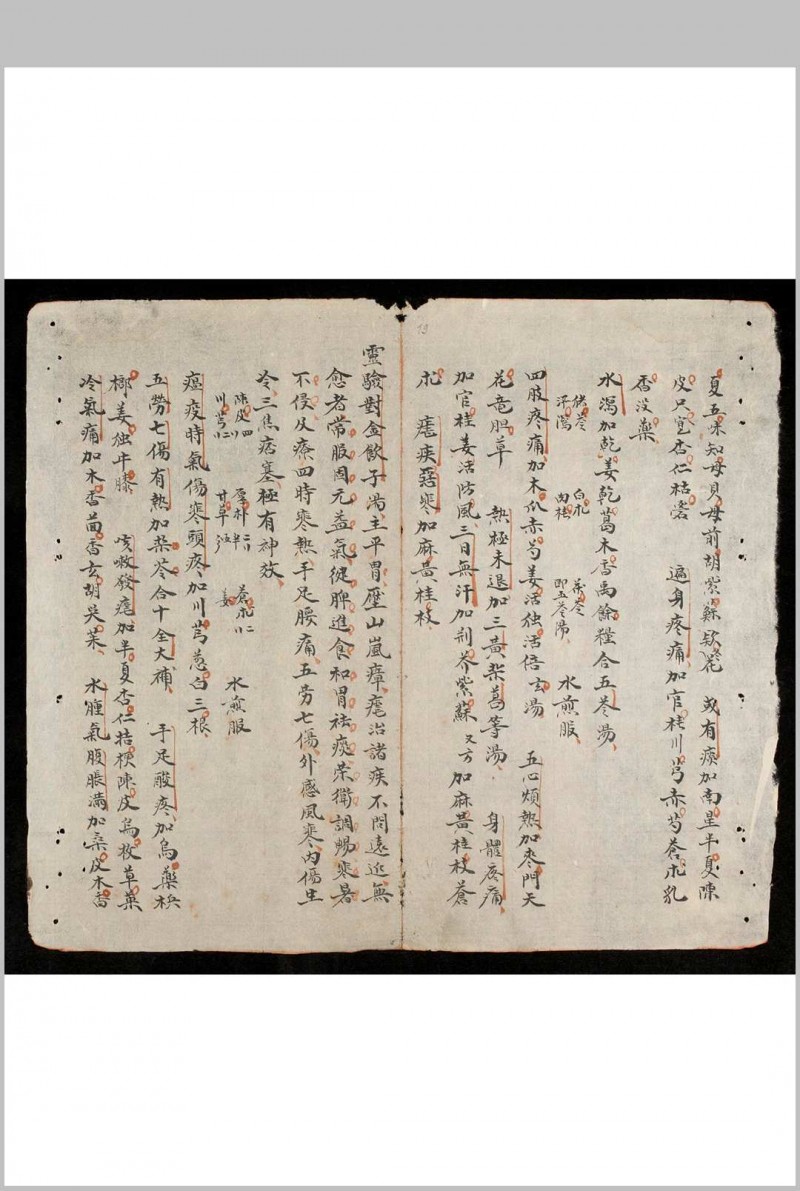 夏五味知母貝母前胡紫蘇欵花　或有痰加南星半夏陳
皮只壳杏仁桔梗　遍身疼痛加官桂川芎赤芍蒼朮乳
香没藥
水瀉加乾姜乾葛木香禹餘粮合五苓湯
猪苓　白朮　茯苓
澤瀉　肉桂　即五苓湯　水煎服
四肢疼痛加木瓜赤芍羌活独活倍玄湯　五心煩熱加麥門天
花竜胆草　熱極未退加三黄柴葛等湯　身體疼痛
加官桂羌活防風三日無汗加荆芥紫蘇又方加麻黄桂枝蒼
朮　瘧疾惡寒加麻黄桂枝
靈驗對金飲子湯主平胃壓山嵐瘴瘧治諸疾不問遠近無
愈者常服固元益氣健脾進食和胃祛痰榮衛調暢寒暑
不侵及療四時寒熱手足腰痛五劳七傷外感風寒内傷生
冷三焦痞塞極有神效
陳皮四　厚朴　蒼朮二
川芎　甘草　姜　水煎服
瘟疫時氣傷寒頭疼加川芎葱白三根
五劳七傷有熱加柴苓合十全大補　手足酸疼加烏藥梹
榔姜独牛膝　咳嗽發瘧加半夏杏仁桔梗陳皮烏枚草菓
冷氣痛加木香茴香玄胡吴茱　水腫氣腹脹满加桑皮木香